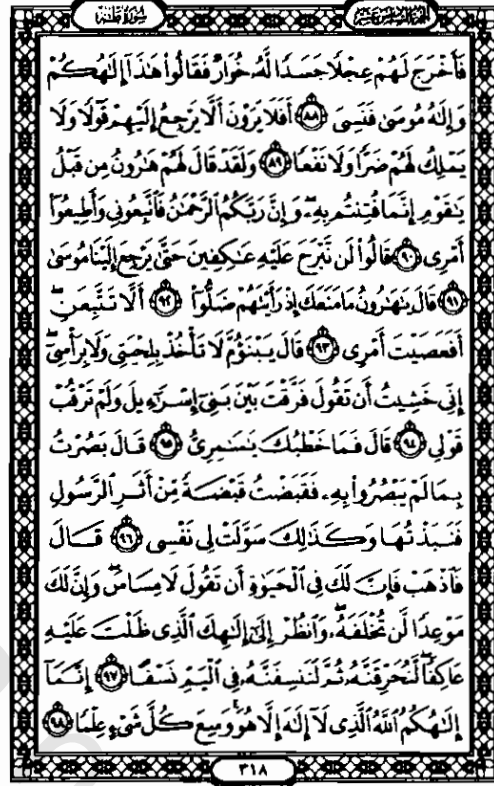 سُورَةُ طه
الجُزْءُ السَّادِسَ عَشَرَ
فَأَخْرَجَ لَهُمْ عِجْلًا جَسَدًا لَّهُۥ خُوَارٌ فَقَالُوا۟ هَٰذَآ إِلَٰهُكُمْ
وَإِلَٰهُ مُوسَىٰ فَنَسِىَ ٨٨ أَفَلَا يَرَوْنَ أَلَّا يَرْجِعُ إِلَيْهِمْ قَوْلًا وَلَا
يَمْلِكُ لَهُمْ ضَرًّا وَلَا نَفْعًا ٨٩ وَلَقَدْ قَالَ لَهُمْ هَٰرُونُ مِن قَبْلُ
يَٰقَوْمِ إِنَّمَا فُتِنتُم بِهِۦ وَإِنَّ رَبَّكُمُ ٱلرَّحْمَٰنُ فَٱتَّبِعُونِى وَأَطِيعُوٓا۟
أَمْرِى ٩٠ قَالُوا۟ لَن نَّبْرَحَ عَلَيْهِ عَٰكِفِينَ حَتَّىٰ يَرْجِعَ إِلَيْنَا مُوسَىٰ
٩١ قَالَ يَٰهَٰرُونُ مَا مَنَعَكَ إِذْ رَأَيْتَهُمْ ضَلُّوٓا۟ ٩٢ أَلَّا تَتَّبِعَنِ ۖ
أَفَعَصَيْتَ أَمْرِى ٩٣ قَالَ يَبْنَؤُمَّ لَا تَأْخُذْ بِلِحْيَتِى وَلَا بِرَأْسِىٓ ۖ
إِنِّى خَشِيتُ أَن تَقُولَ فَرَّقْتَ بَيْنَ بَنِىٓ إِسْرَٰٓءِيلَ وَلَمْ تَرْقُبْ
قَوْلِى ٩٤ قَالَ فَمَا خَطْبُكَ يَٰسَٰمِرِىُّ ٩٥ قَالَ بَصُرْتُ
بِمَا لَمْ يَبْصُرُوا۟ بِهِۦ فَقَبَضْتُ قَبْضَةً مِّنْ أَثَرِ ٱلرَّسُولِ
فَنَبَذْتُهَا وَكَذَٰلِكَ سَوَّلَتْ لِى نَفْسِى ٩٦ قَالَ
فَٱذْهَبْ فَإِنَّ لَكَ فِى ٱلْحَيَوٰةِ أَن تَقُولَ لَا مِسَاسَ ۖ وَإِنَّ لَكَ
مَوْعِدًا لَّن تُخْلَفَهُۥ ۖ وَٱنظُرْ إِلَىٰٓ إِلَٰهِكَ ٱلَّذِى ظَلْتَ عَلَيْهِ
عَاكِفًا ۖ لَّنُحَرِّقَنَّهُۥ ثُمَّ لَنَنسِفَنَّهُۥ فِى ٱلْيَمِّ نَسْفًا ٩٧ إِنَّمَآ
إِلَٰهُكُمُ ٱللَّهُ ٱلَّذِى لَآ إِلَٰهَ إِلَّا هُوَ ۚ وَسِعَ كُلَّ شَىْءٍ عِلْمًا ٩٨
٣١٨